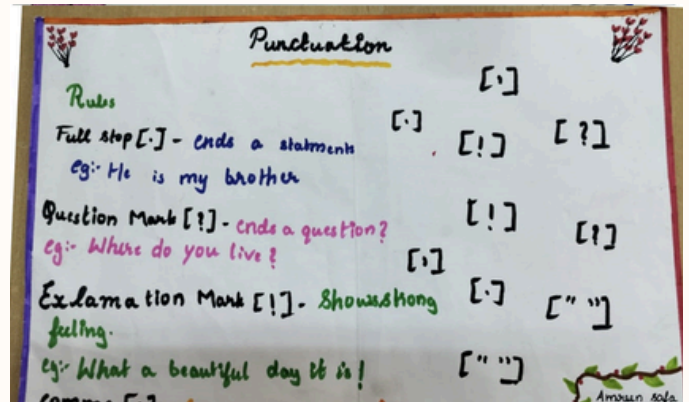 Punctuation
[,]
Rules
[.]
Full stop [.] - ends a statment
[!]
[?]
eg:- He is my brother
Question Mark [?] - ends a question?
[!]
[?]
eg:- Where do you live?
[,]
Exlamation Mark [!] - Shows strong
[.]
[" "]
feeling.
eg:- What a beautiful day it is!
[" "]
Amrun safa